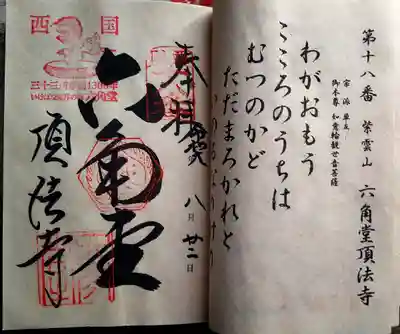 第十八番 紫雲山 六角堂頂法寺
宗派 単立
御本尊 如意輪観世音菩薩
わがおもう
こころのうちは
むつのかど
ただまろかれと
いのるなりけり
奉拝
八月廿二日
六角堂
頂法寺
西国